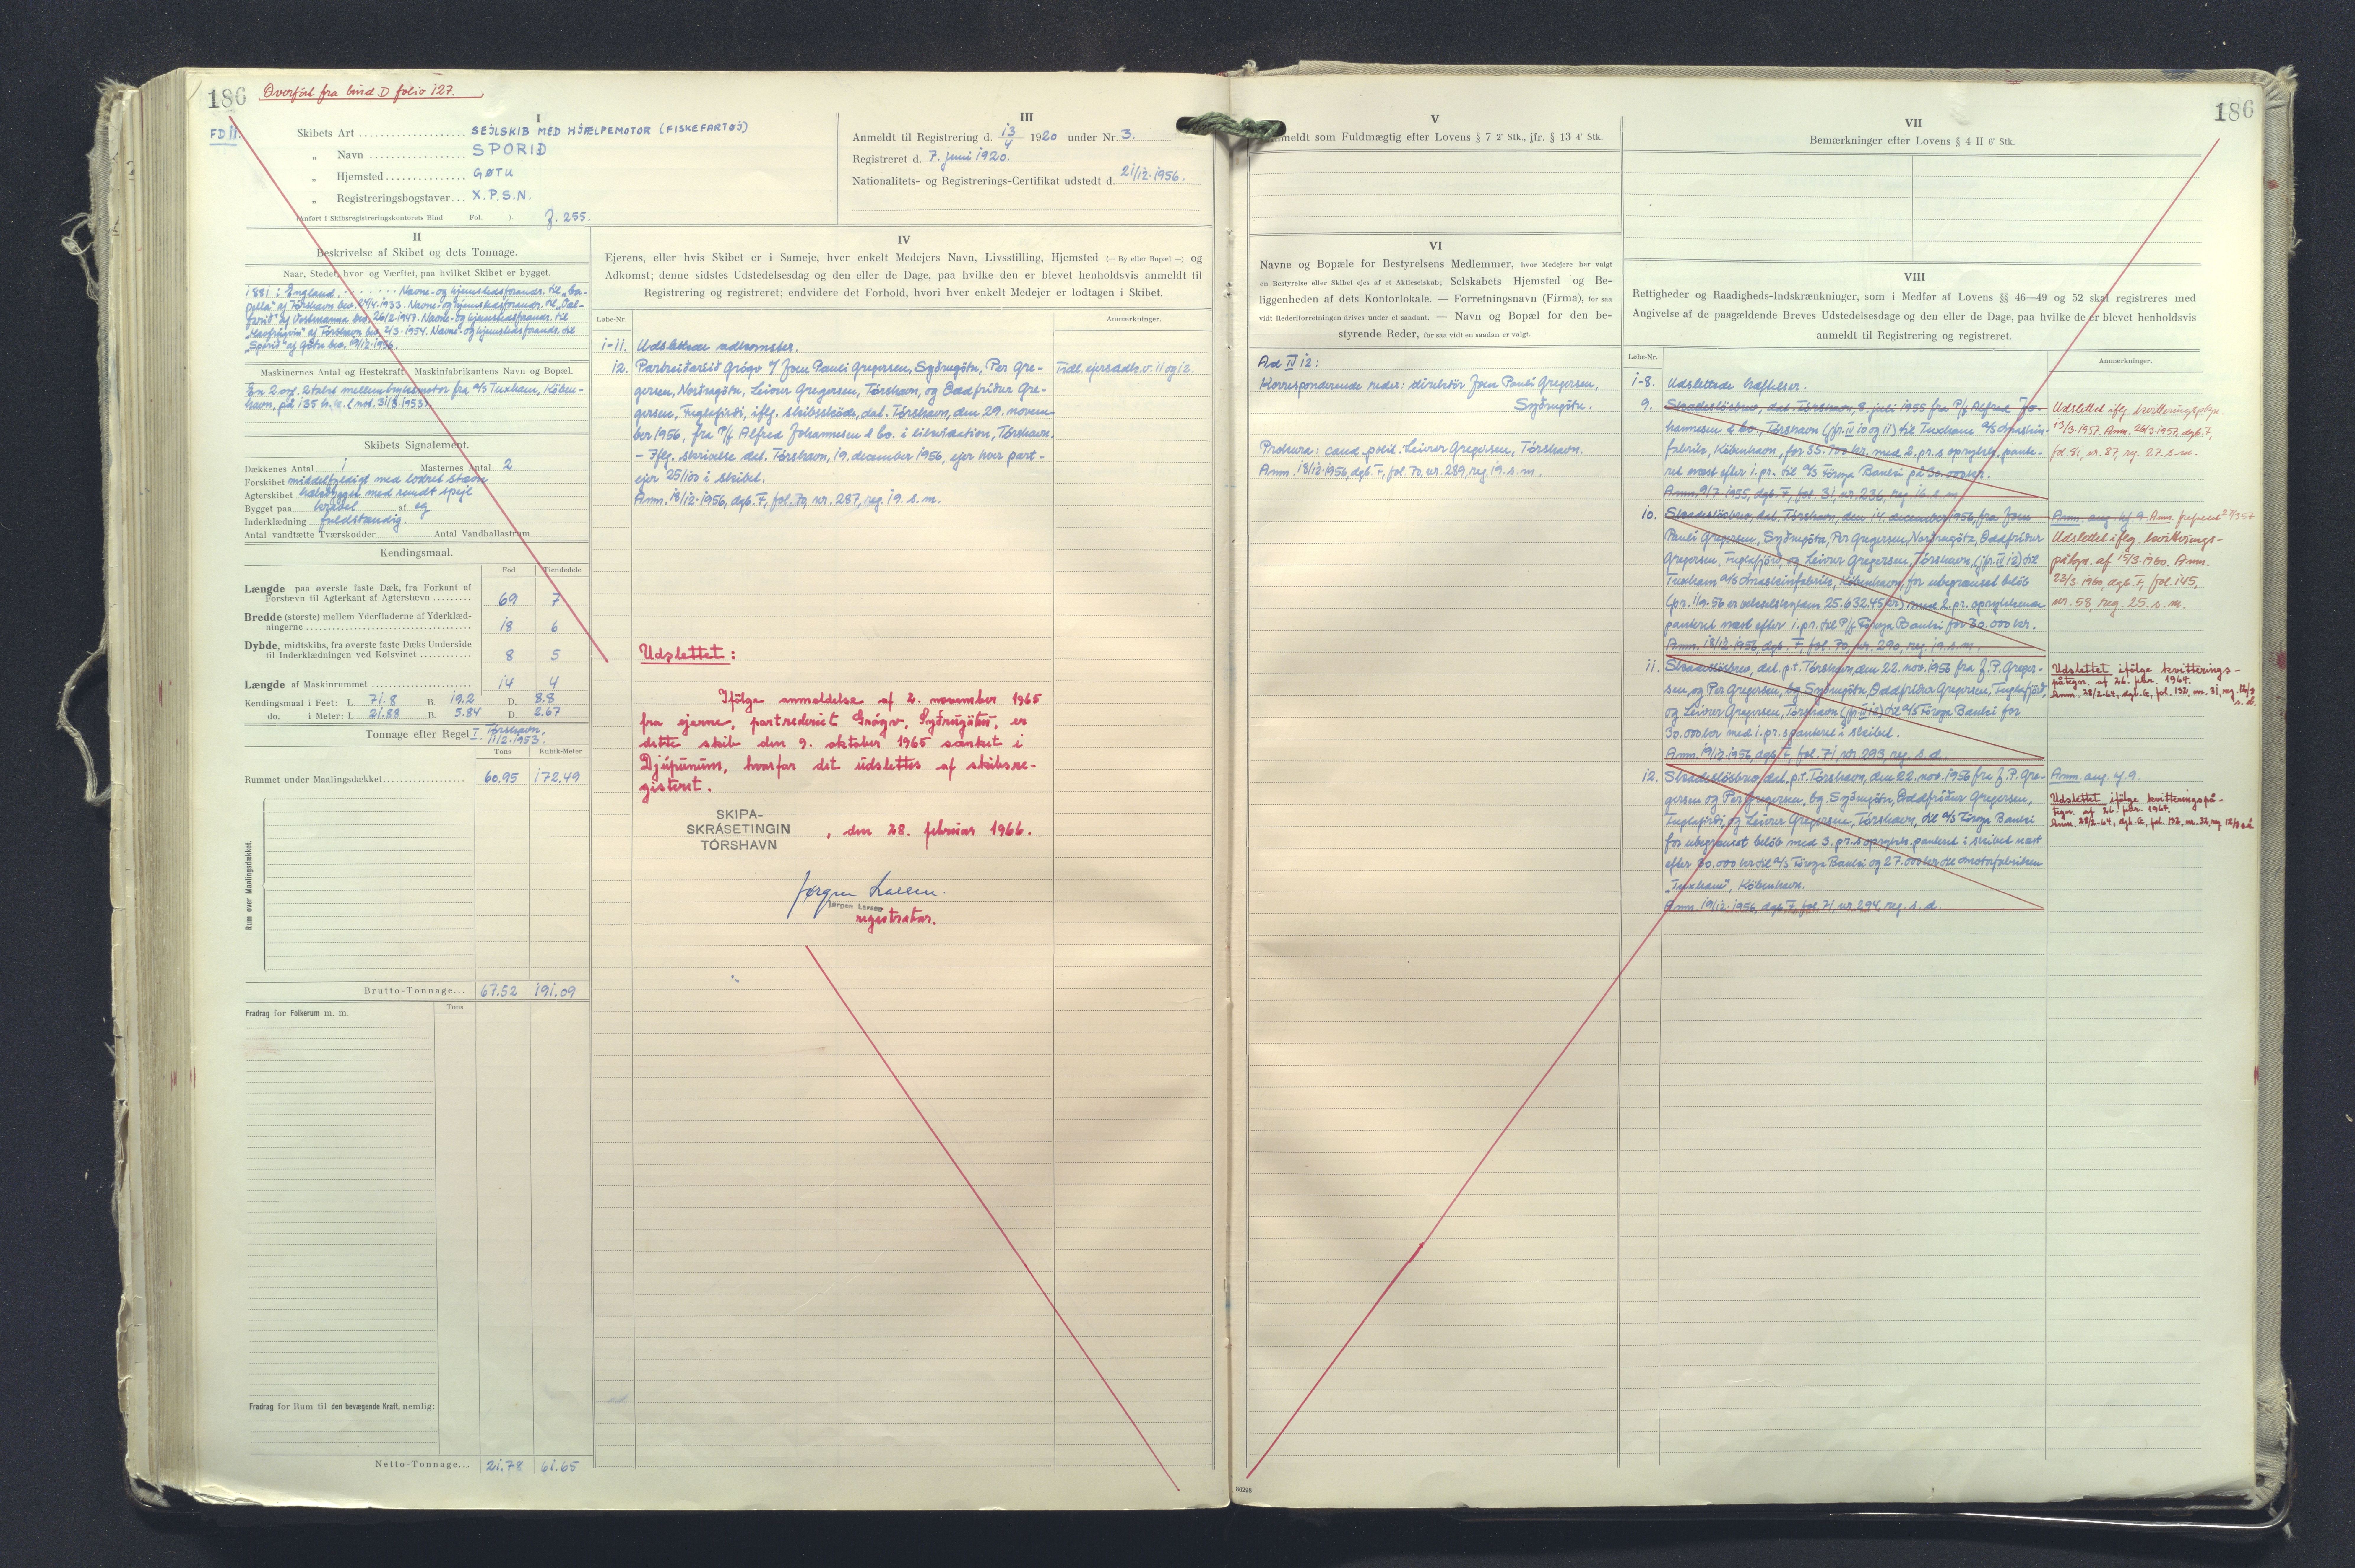 186
Overført fra bind D folio 127.
FD 11.
I
Skibets Art SEJLSKIB MED HJÆLPEMOTOR (FISKEFARTØJ)
„ Navn SPORIÐ
„ Hjemsted GØTU
„ Registreringsbogstaver X.P.S.N.
(Anført i Skibsregistreringskontorets Bind Fol. ). J. 255.
III
Anmeldt til Registrering d. 13/4 1920 under Nr. 3.
Registreret d. 7. juni 1920.
Nationalitets- og Registrerings-Certifikat udstedt d. 21/12-1956.
II
Beskrivelse af Skibet og dets Tonnage.
Naar, Stedet, hvor og Værftet, paa hvilket Skibet er bygget.
1881 : England. Navne- og hjemstedsforandr. til
af Tórshavn bev. 24/4 1933. Navne- og hjemstedsforandr. til
af Vestmanna bev. 26/2-1947. Navne- og hjemstedsforandr. til
"Havfrúgvin" af Tórshavn bev. 2/3-1954. Navne- og hjemstedsforandr. til
„Sporið" af Gøtu bev. 19/12-1956.
Maskinernes Antal og Hestekraft. Maskinfabrikantens Navn og Bopæl.
En 2 cyl. 2 takts mellemtryksmotor fra a/s Tuxham, Køben-
havn, på 135 h.k. (mot. 31/3-1953).
Skibets Signalement.
Dækkenes Antal 1 Masternes Antal 2
Forskibet middelfyldigt med lodret stævn
Agterskibet hækbygget med rundt spejl
Bygget paa kravel af eg
Inderklædning fuldstændig.
Antal vandtætte Tværskodder Antal Vandballastrum
Kendingsmaal.
Fod Tiendedele
Længde paa øverste faste Dæk, fra Forkant af
Forstævn til Agterkant af Agterstævn 69 7
Bredde (største) mellem Yderfladerne af Yderklæd-
ningerne 18 6
Dybde, midtskibs, fra øverste faste Dæks Underside
til Inderklædningen ved Kølsvinet 8 5
Længde af Maskinrummet 14 4
Kendingsmaal i Feet: L. 71.8 B. 19.2 D. 8.8
do. i Meter: L. 21.88 B. 5.84 D. 2.67
Tonnage efter Regel I. Tórshavn, 11/2-1953.
Tons Kubik-Meter
Rummet under Maalingsdækket 60.95 172.49
Rum over Maalingsdækket.
Brutto-Tonnage... 67.52 191.09
Tons
Fradrag for Folkerum m. m.
Fradrag for Rum til den bevægende Kraft, nemlig:
Netto-Tonnage... 21.78 61.65
IV
Ejerens, eller hvis Skibet er i Sameje, hver enkelt Medejers Navn, Livsstilling, Hjemsted (— By eller Bopæl —) og
Adkomst; denne sidstes Udstedelsesdag og den eller de Dage, paa hvilke den er blevet henholdsvis anmeldt til
Registrering og registreret; endvidere det Forhold, hvori hver enkelt Medejer er lodtagen i Skibet.
Løbe-Nr. Anmærkninger.
1-11. Udslettede adkomster.
12. Partreiðaríið Grógv v/ Joen Pauli Gregersen, Syðrugøtu, Per Gre- Tidl. ejersadk. v. 11 og 12.
gersen, Norðragøtu, Leivur Gregersen, Tórshavn, og Oddfríður Gre-
gersen, Fuglafirði, iflg. skibsskøde, dat. Tórshavn, den 29. novem-
ber 1956, fra P/f Alfred Johannesen & Co. i likvidation, Tórshavn.
- Iflg. skrivelse dat. Tórshavn, 19. december 1956, ejer hver part-
ejer 25/100 i skibet.
Anm. 18/12-1956, dgb. F, fol. 70, nr. 287, reg. 19. s. m.
Udslettet:
Ifølge anmeldelse af 2. november 1965
fra ejerne, partrederiet Grógv, Syðrugøtu, er
dette skib den 9. oktober 1965 sænket i
Djúpunum, hvorfor det udslettes af skibsre-
gisteret.
SKIPA-
SKRÁSETINGIN
TÓRSHAVN
, den 28. februar 1966.
Jørgen Larsen.
Jørgen Larsen
registrator.
186
V
Anmeldt som Fuldmægtig efter Lovens § 7 2' Stk., jfr. § 13 4' Stk.
VI
Navne og Bopæle for Bestyrelsens Medlemmer, hvor Medejere har valgt
en Bestyrelse eller Skibet ejes af et Aktieselskab; Selskabets Hjemsted og Be-
liggenheden af dets Kontorlokale. — Forretningsnavn (Firma), for saa
vidt Rederiforretningen drives under et saadant. — Navn og Bopæl for den be-
styrende Reder, for saa vidt en saadan er valgt.
Ad IV 12:
Korresponderende reder: direktør Joen Pauli Gregersen,
Syðrugøtu.
Prokura: cand. polit. Leivur Gregersen, Tórshavn.
Anm. 18/12-1956, dgb. F, fol. 70, nr. 289, reg. 19. s. m.
VII
Bemærkninger efter Lovens § 4 II 6' Stk.
VIII
Rettigheder og Raadigheds-Indskrænkninger, som i Medfør af Lovens §§ 46—49 og 52 skal registreres med
Angivelse af de paagældende Breves Udstedelsesdage og den eller de Dage, paa hvilke de er blevet henholdsvis
anmeldt til Registrering og registreret.
Løbe-Nr. Anmærkninger.
1-8. Udslettede hæftelser.
9. Skadesløsbrev, dat. Tórshavn, 8. juli 1955 fra P/f Alfred Jo- Udslettet iflg. kvitteringspåtegn.
hannesen & Co., Tórshavn (jfr. IV 10 og 11) til Tuxham a/s maskin- 13/3-1957. Anm. 26/3-1957, dgb. F,
fabrik, København, for 35.700 kr. med 2. pr.s oprykk. pante- fol. 81, nr. 87, reg. 27. s. m.
ret næst efter 1. pr. til a/s Føroya Banki på 30.000 kr.
Anm. 9/7-1955, dgb. F, fol. 31, nr. 236, reg. 16. s. m.
10. Skadesløsbrev, dat. Tórshavn, den 14. december 1956, fra Joen Anm. ang. hf. 9.
Pauli Gregersen, Syðrugøtu, Per Gregersen, Norðragøtu, Oddfríður Udslettet iflg. kvitterings-
Gregersen, Fuglafjørd, og Leivur Gregersen, Tórshavn, (jfr. IV 12) til påtegn. af 15/3-1960. Anm.
Tuxham a/s maskinfabrik, København, for ubegrænset beløb 23/3-1960, dgb. F, fol. 145,
(pr. 1/9-56 er vekselskylden 25.632.45 kr) med 2. pr. oprykkende nr. 58, reg. 25. s. m.
panteret næst efter 1. pr. til P/f Føroya Banki for 30.000 kr.
Anm. 18/12-1956, dgb. F, fol. 70, nr. 290, reg. 19. s. m.
11. Skadesløsbrev, dat. p.t. Tórshavn, den 22. nov. 1956 fra J. P. Greger- Udslettet ifølge kvitterings-
sen, og Per Gregersen, bg. Syðrugøtu, Oddfríður Gregersen, Fuglafjørð, påtegn. af 26. febr. 1964.
og Leivur Gregersen, Tórshavn (jfr. IV 12) til a/s Føroya Banki for Anm. 28/2-64, dgb. G, fol. 132, nr. 31, reg. 12/3 s. å.
30.000 kr med 1. pr.s panteret i skibet.
Anm. 19/12-1956, dgb. F, fol. 71, nr. 293, reg. s. d.
12. Skadesløsbrev, dat. p.t. Tórshavn, den 22. nov. 1956 fra J. P. Gre- Anm. ang. hf. 9.
gersen og Per Gregersen, bg. Syðrugøtu, Oddfríður Gregersen, Udslettet ifølge kvitteringspå-
Fuglafirði, og Leivur Gregersen, Tórshavn, til a/s Føroya Banki tegn. af 26. febr. 1964.
for ubegrænset beløb med 3. pr.s oprykk. panteret i skibet næst Anm. 28/2-64, dgb. G, fol. 132, nr. 32, reg. 12/3 s. å.
efter 30.000 kr til a/s Føroya Banki og 27.000 kr til motorfabrikken
„Tuxham", København.
Anm. 19/12-1956, dgb. F, fol. 71, nr. 294, reg. s. d.